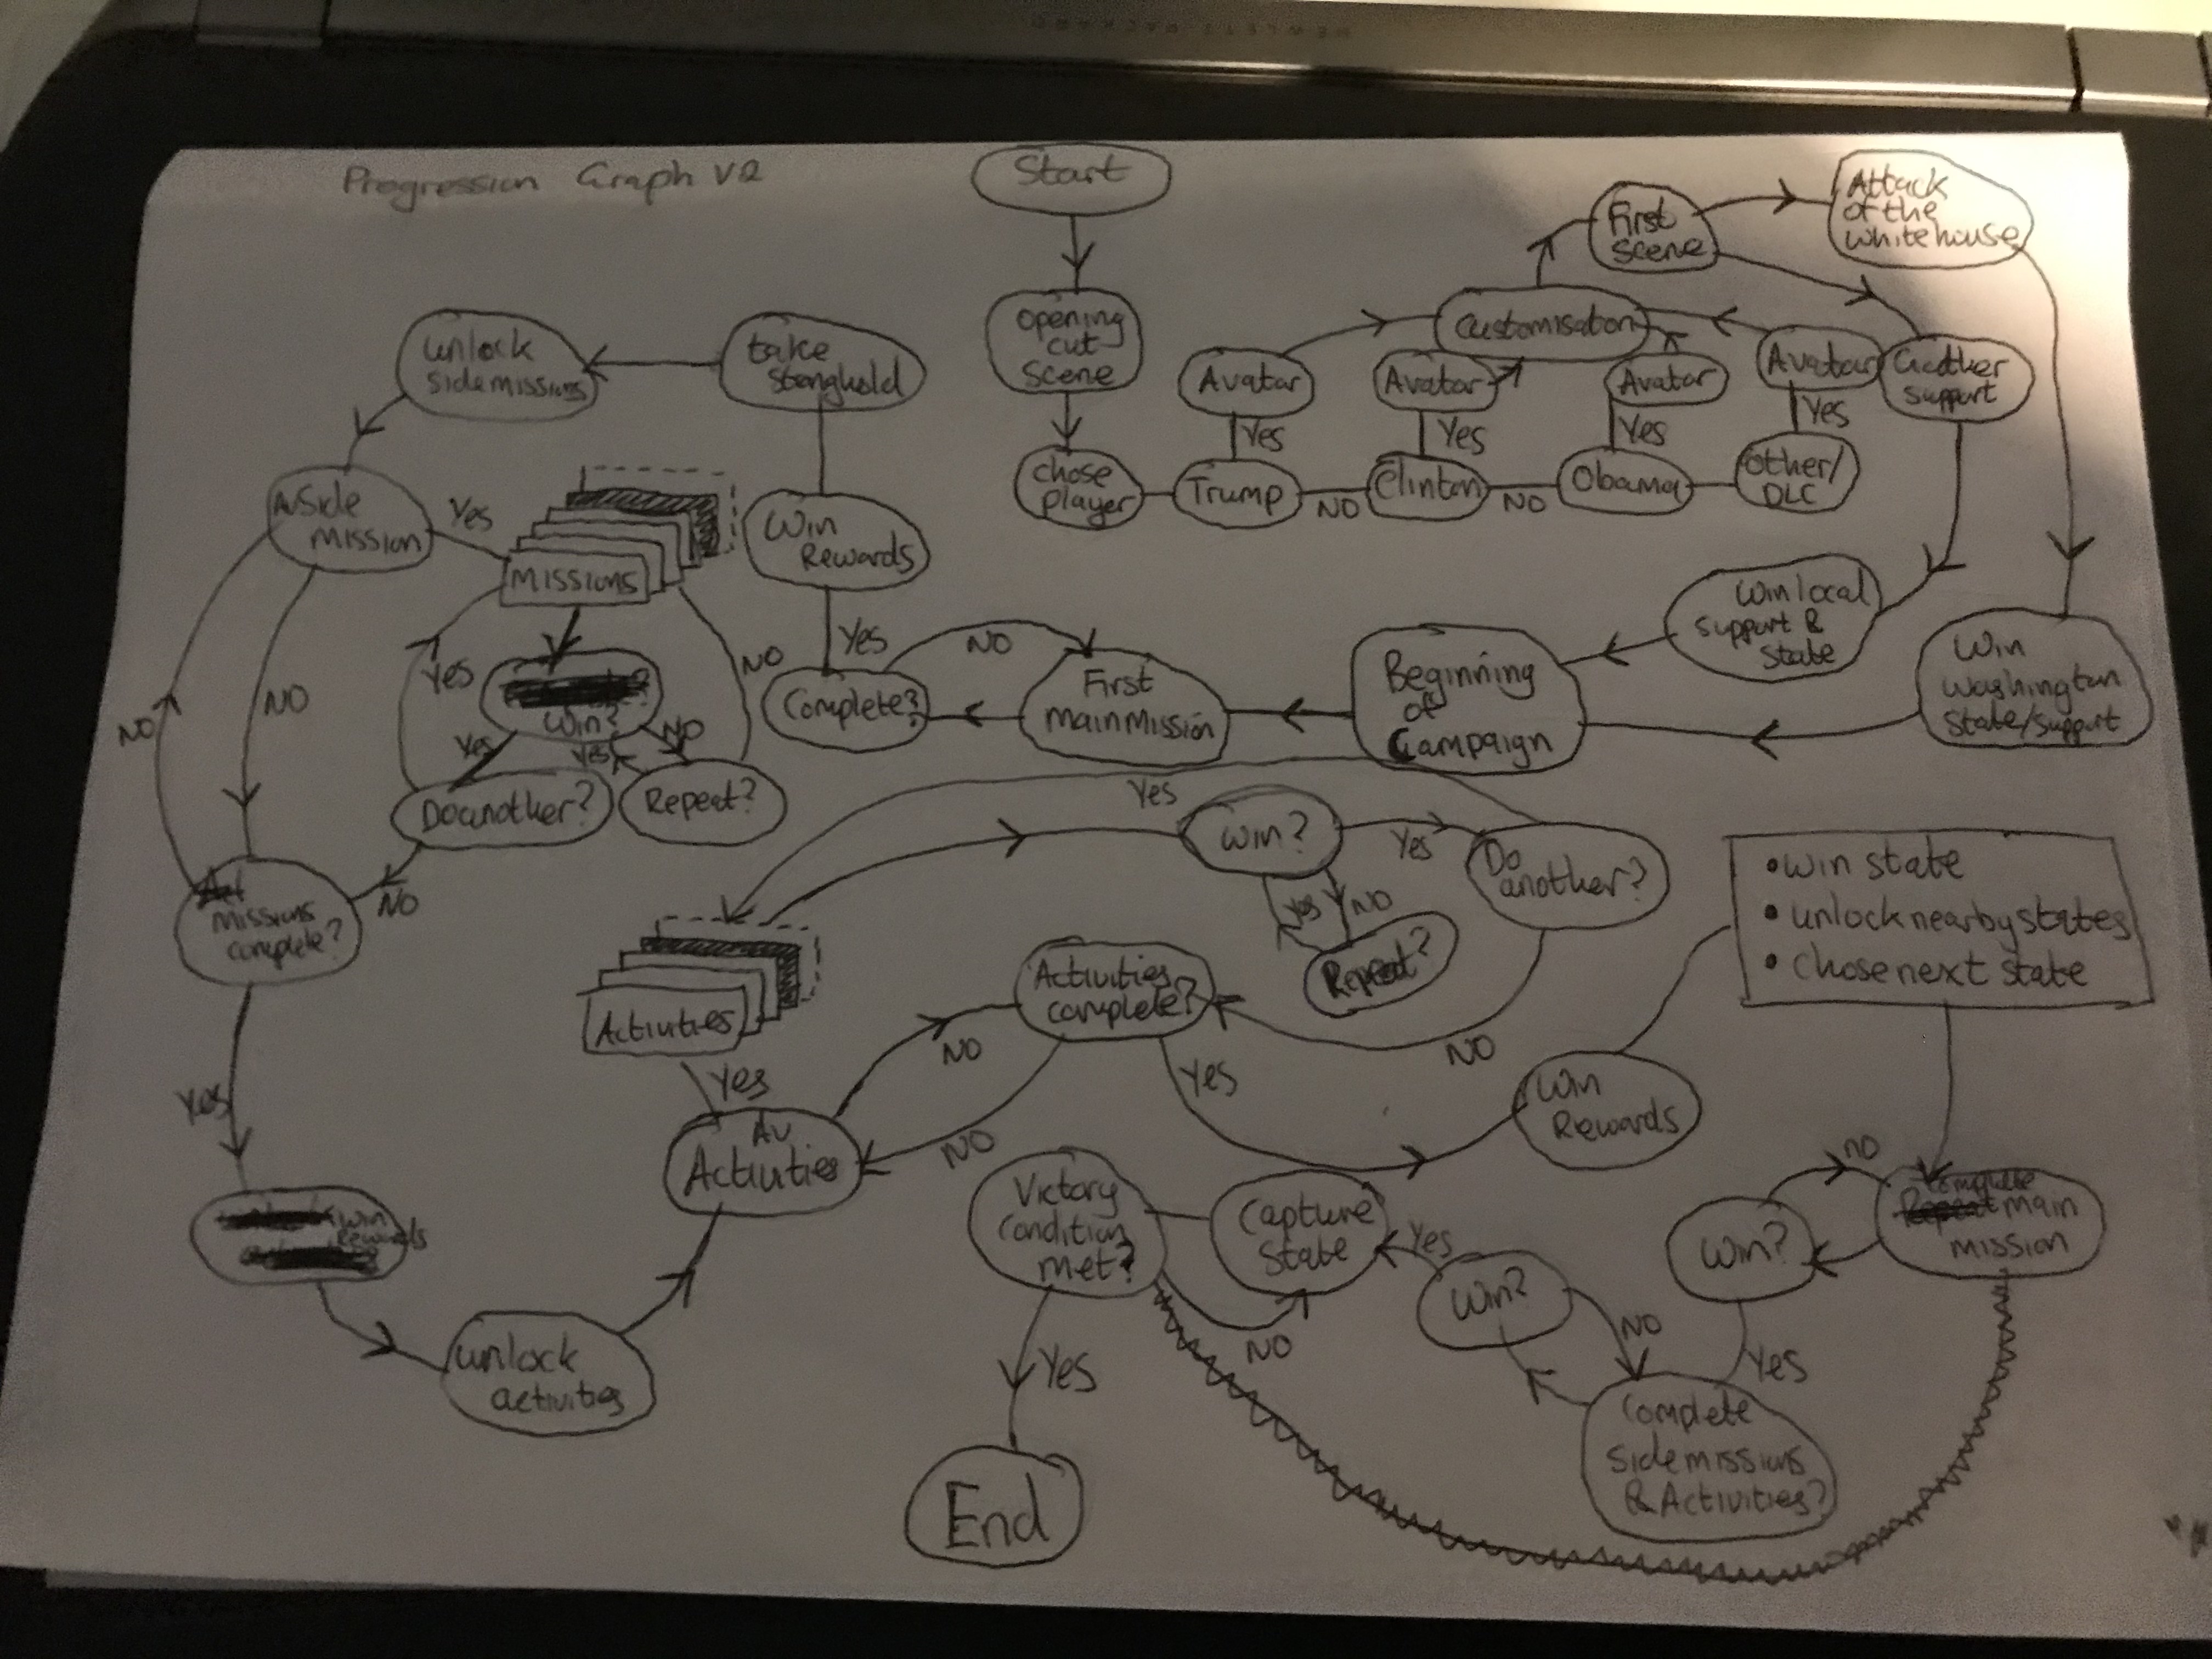 Progression Graph V2
Start
opening
cut
scene
chose
player
Trump
Yes
Avatar
NO
Clinton
Yes
Avatar
NO
Obama
Yes
Avatar
other/
DLC
Yes
Avatar
Customisation
First
scene
Attack
of the
white house
Gather
support
Win local
support &
State
Win
washington
State/support
Beginning
of
Campaign
First
main mission
Complete?
NO
Yes
Win
Rewards
take
stronghold
unlock
side missions
A side
mission
Yes
Missions
Win?
Yes
NO
Repeat?
Yes
NO
Do another?
Yes
NO
NO
NO
missions
complete?
Yes
Win
Rewards
unlock
activities
AV
Activities
Yes
Activities
NO
NO
Activities
complete?
Win?
NO
Yes
Repeat?
Yes
Do
another?
Yes
NO
Yes
Win
Rewards
• Win state
• unlock nearby states
• chose next state
main
mission
NO
Win?
Yes
Complete
side missions
& Activities?
NO
Win?
Yes
Capture
State
NO
Victory
condition
met?
Yes
End